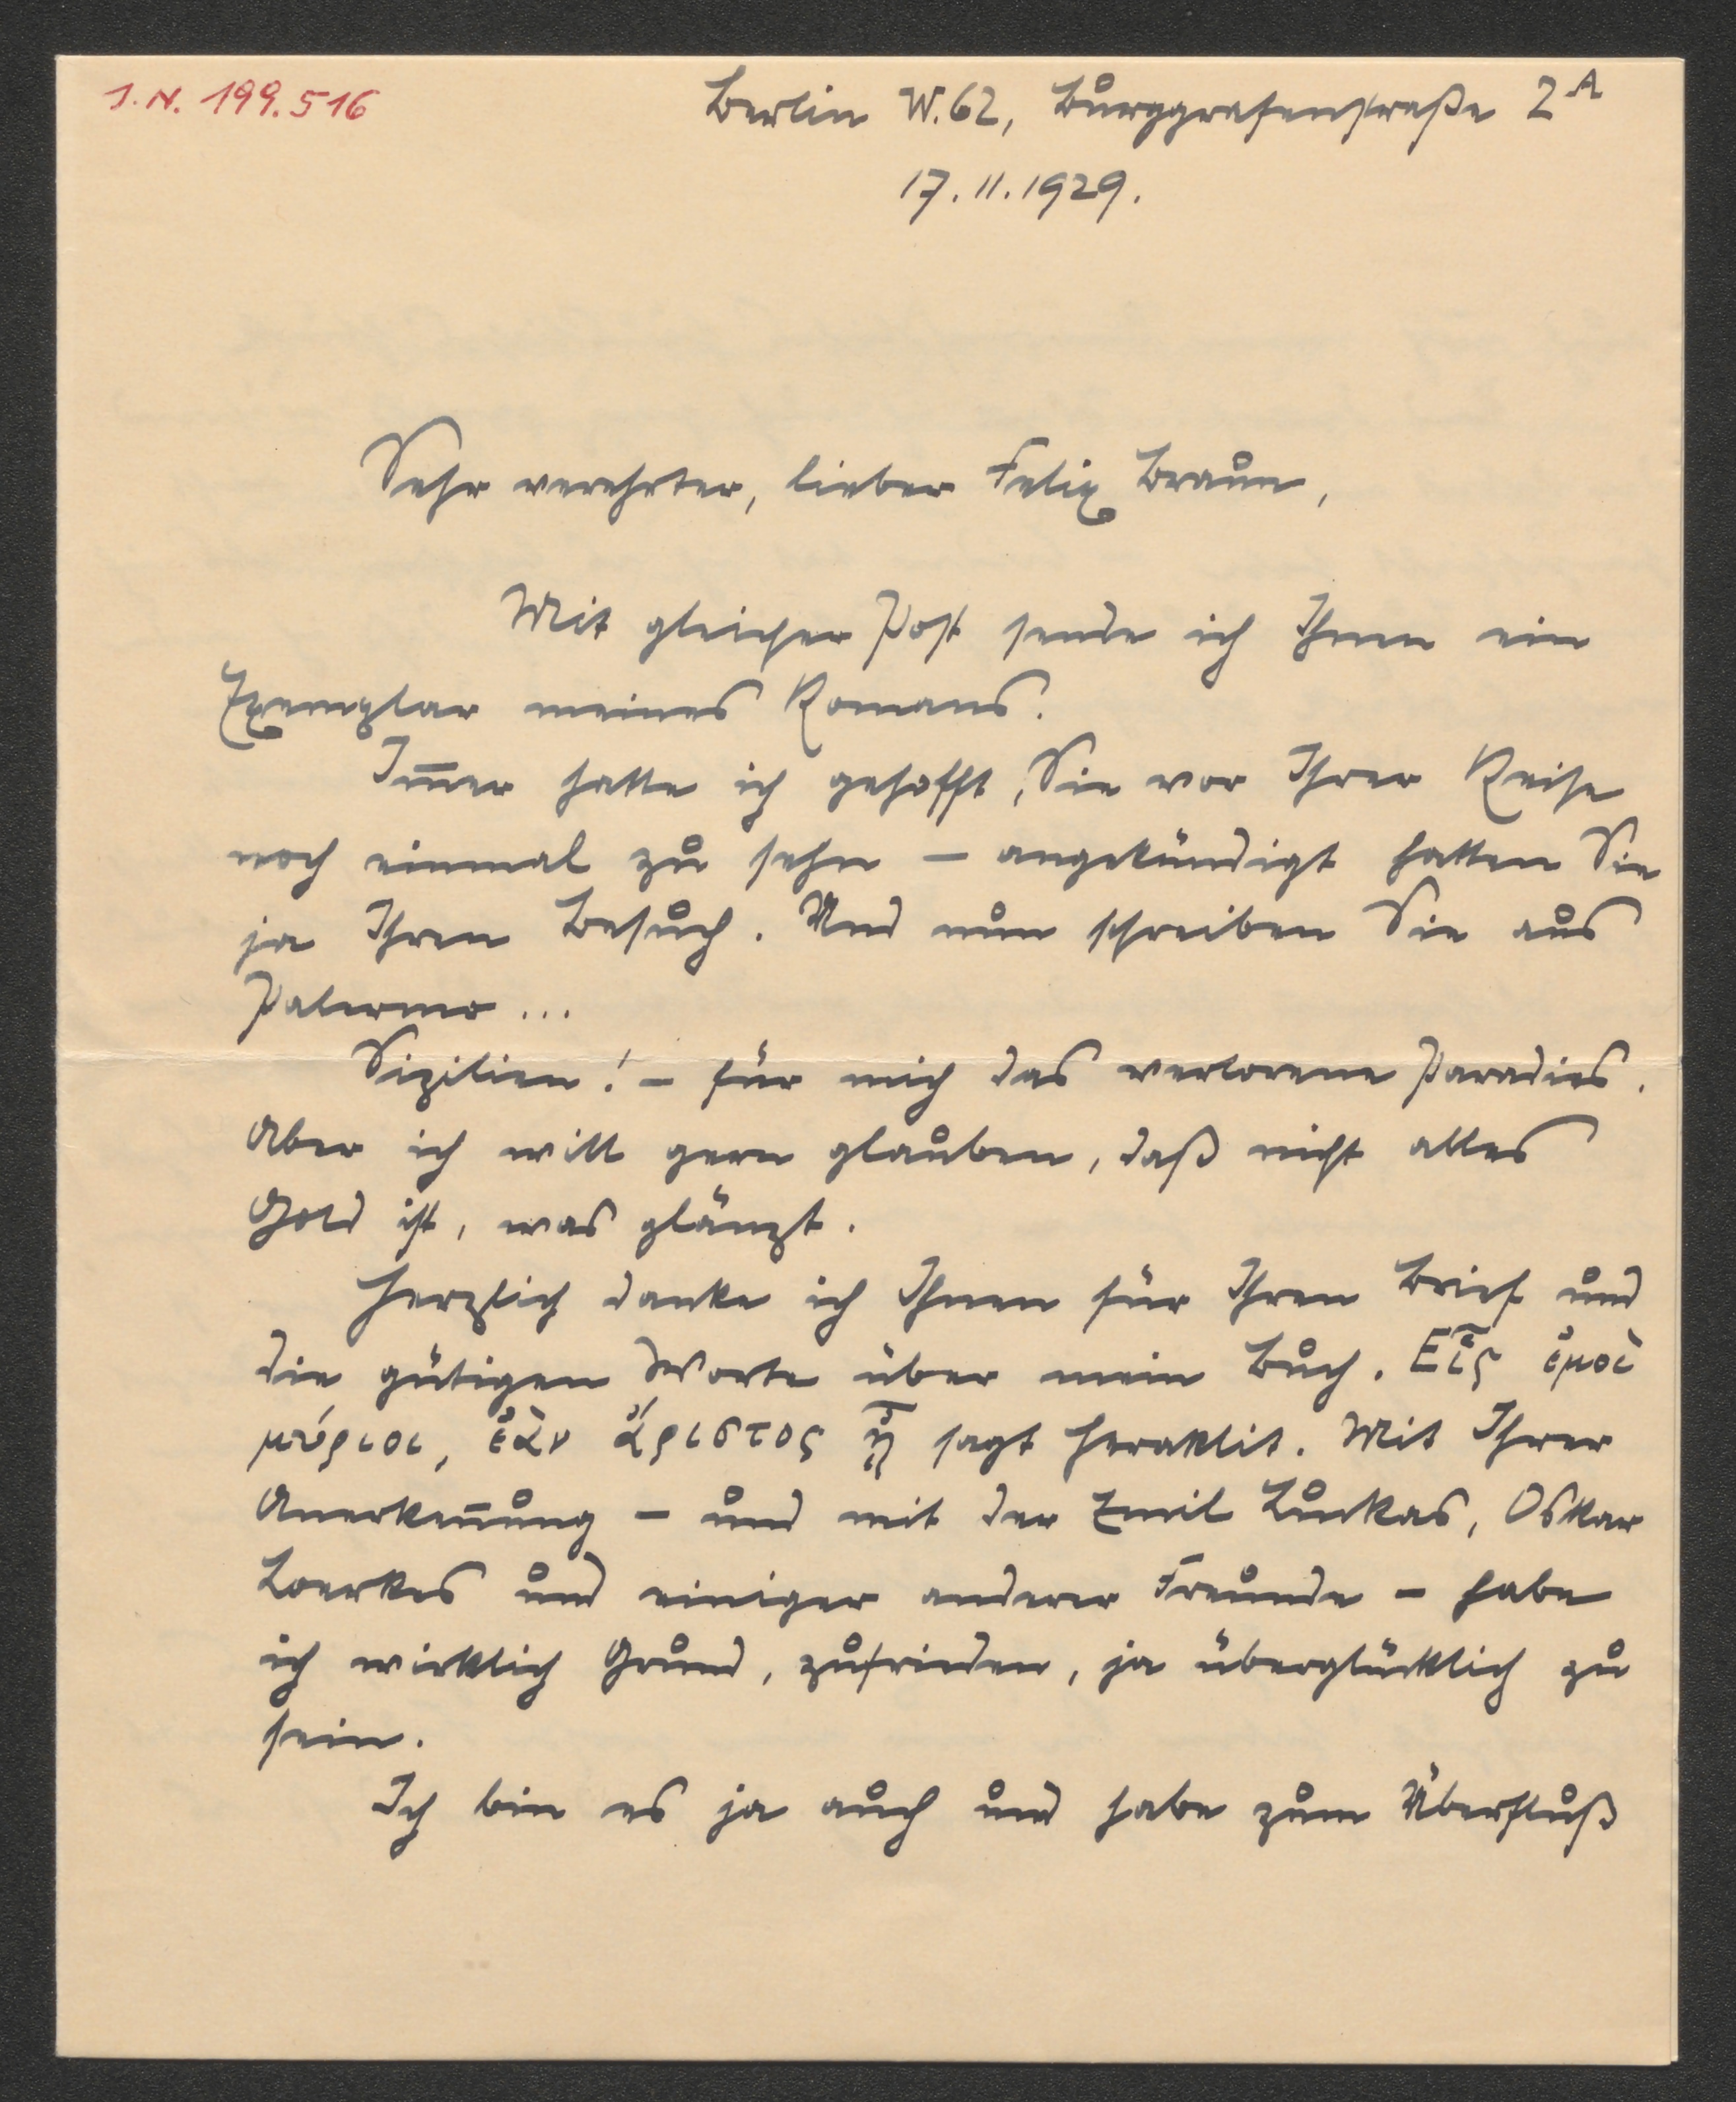 J. N. 199.516
Berlin W. 62, Burggrafenstraße 2 A
17. 11. 1929.
Sehr verehrter, lieber Felix Braun,
Mit gleicher Post sende ich Ihnen ein
Exemplar meines Romans.
Im̅er hatte ich gehofft, Sie vor Ihrer Reise
noch einmal zu sehn – angekündigt hatten Sie
ja Ihren Besuch. Und nun schreiben Sie aus
Palermo ...
Sizilien! – für mich das verlorene Paradies.
Aber ich will gern glauben, daß nicht alles
Gold ist, was glänzt.
Herzlich danke ich Ihnen für Ihren Brief und
die gütigen Worte über mein Buch. Εἷς ἐμοὶ
μύριοι, ἐὰν ἄριστος ᾖ sagt Heraklit. Mit Ihrer
Anerken̅ung – und mit der Emil Luckas, Oskar
Loerkes und einiger anderer Freunde – habe
ich wirklich Grund, zufrieden, ja überglücklich zu
sein.
Ich bin es ja auch und habe zum Überfluß